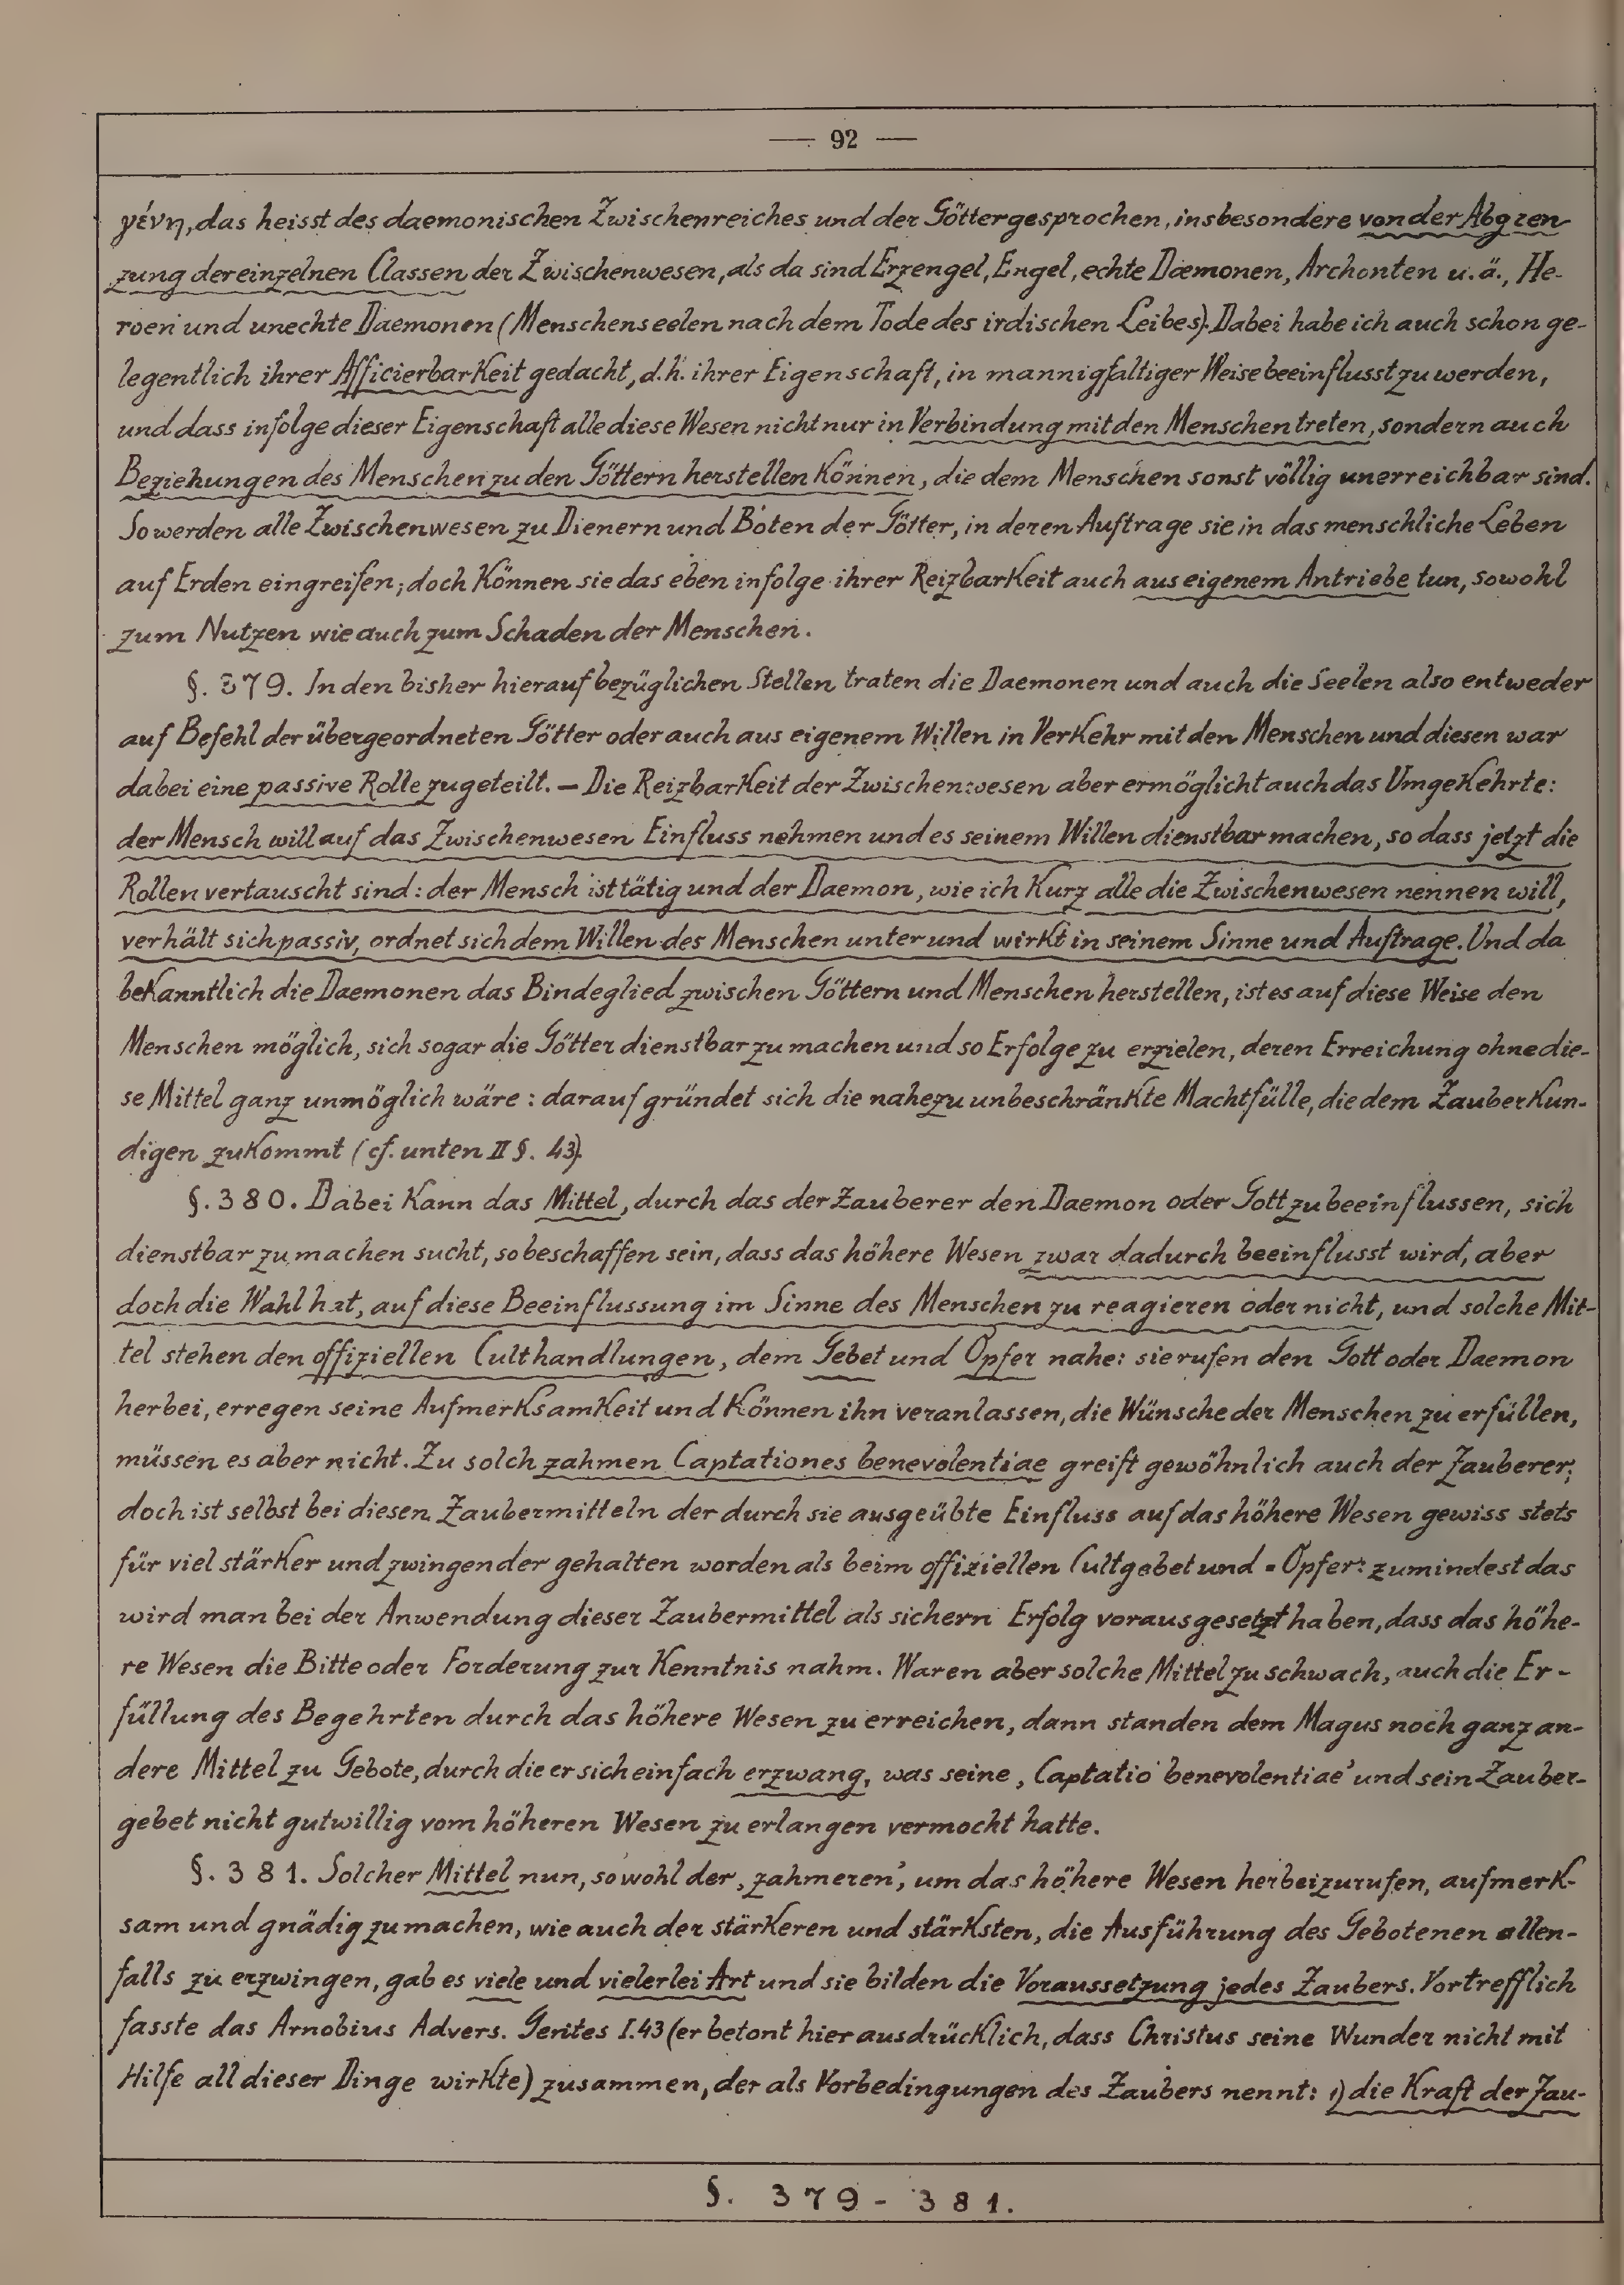 — 92 —
γένη, das heisst des daemonischen Zwischenreiches und der Götter gesprochen, insbesondere von der Abgren-
zung der einzelnen Classen der Zwischenwesen, als da sind Erzengel, Engel, echte Daemonen, Archonten u. ä., He-
roen und unechte Daemonen (Menschenseelen nach dem Tode des irdischen Leibes). Dabei habe ich auch schon ge-
legentlich ihrer Afficierbarkeit gedacht, d. h. ihrer Eigenschaft, in mannigfaltiger Weise beeinflusst zu werden,
und dass infolge dieser Eigenschaft alle diese Wesen nicht nur in Verbindung mit den Menschen treten, sondern auch
Beziehungen des Menschen zu den Göttern herstellen können, die dem Menschen sonst völlig unerreichbar sind.
So werden alle Zwischenwesen zu Dienern und Boten der Götter, in deren Auftrage sie in das menschliche Leben
auf Erden eingreifen; doch können sie das eben infolge ihrer Reizbarkeit auch aus eigenem Antriebe tun, sowohl
zum Nutzen wie auch zum Schaden der Menschen.
§. 379. In den bisher hierauf bezüglichen Stellen traten die Daemonen und auch die Seelen also entweder
auf Befehl der übergeordneten Götter oder auch aus eigenem Willen in Verkehr mit den Menschen und diesen war
dabei eine passive Rolle zugeteilt. — Die Reizbarkeit der Zwischenwesen aber ermöglicht auch das Umgekehrte:
der Mensch will auf das Zwischenwesen Einfluss nehmen und es seinem Willen dienstbar machen, so dass jetzt die
Rollen vertauscht sind: der Mensch ist tätig und der Daemon, wie ich kurz alle die Zwischenwesen nennen will,
verhält sich passiv, ordnet sich dem Willen des Menschen unter und wirkt in seinem Sinne und Auftrage. Und da
bekanntlich die Daemonen das Bindeglied zwischen Göttern und Menschen herstellen, ist es auf diese Weise den
Menschen möglich, sich sogar die Götter dienstbar zu machen und so Erfolge zu erzielen, deren Erreichung ohne die-
se Mittel ganz unmöglich wäre: darauf gründet sich die nahezu unbeschränkte Machtfülle, die dem Zauberkun-
digen zukommt (cf. unten II §. 43).
§. 380. Dabei kann das Mittel, durch das der Zauberer den Daemon oder Gott zu beeinflussen, sich
dienstbar zu machen sucht, so beschaffen sein, dass das höhere Wesen zwar dadurch beeinflusst wird, aber
doch die Wahl hat, auf diese Beeinflussung im Sinne des Menschen zu reagieren oder nicht, und solche Mit-
tel stehen den offiziellen Culthandlungen, dem Gebet und Opfer nahe: sie rufen den Gott oder Daemon
herbei, erregen seine Aufmerksamkeit und können ihn veranlassen, die Wünsche der Menschen zu erfüllen,
müssen es aber nicht. Zu solch zahmen Captationes benevolentiae greift gewöhnlich auch der Zauberer;
doch ist selbst bei diesen Zaubermitteln der durch sie ausgeübte Einfluss auf das höhere Wesen gewiss stets
für viel stärker und zwingender gehalten worden als beim offiziellen Cultgebet und -Opfer: zumindest das
wird man bei der Anwendung dieser Zaubermittel als sichern Erfolg vorausgesetzt haben, dass das höhe-
re Wesen die Bitte oder Forderung zur Kenntnis nahm. Waren aber solche Mittel zu schwach, auch die Er-
füllung des Begehrten durch das höhere Wesen zu erreichen, dann standen dem Magus noch ganz an-
dere Mittel zu Gebote, durch die er sich einfach erzwang, was seine ‚Captatio benevolentiae' und sein Zauber-
gebet nicht gutwillig vom höheren Wesen zu erlangen vermocht hatte.
§. 381. Solcher Mittel nun, sowohl der ‚zahmeren', um das höhere Wesen herbeizurufen, aufmerk-
sam und gnädig zu machen, wie auch der stärkeren und stärksten, die Ausführung des Gebotenen allen-
falls zu erzwingen, gab es viele und vielerlei Art und sie bilden die Voraussetzung jedes Zaubers. Vortrefflich
fasste das Arnobius Advers. Gentes I. 43 (er betont hier ausdrücklich, dass Christus seine Wunder nicht mit
Hilfe all dieser Dinge wirkte) zusammen, der als Vorbedingungen des Zaubers nennt: 1) die Kraft der Zau-
§. 379 - 381.